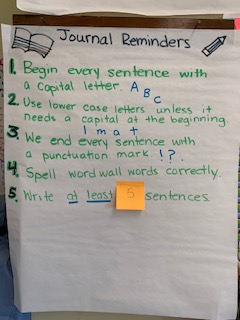 Journal Reminders
1. Begin every sentence with
a capital letter. A B C
2. Use lower case letters unless it
needs a capital at the beginning
l m a t
3. We end every sentence with
a punctuation mark. ! ? .
4. Spell word wall words correctly.
5. Write at least 5 sentences.